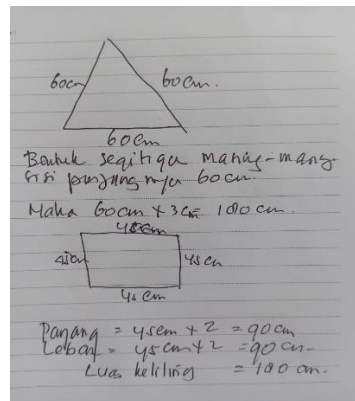 60cm 60cm.
60cm
Bentuk segitiga masing-masing
sisi panjangnya 60cm.
Maka 60cm x 3cm = 180cm.
45cm
45cm 45cm
45cm
Panjang = 45cm x 2 = 90cm
Lebar = 45cm x 2 = 90cm
Luas keliling = 180cm.